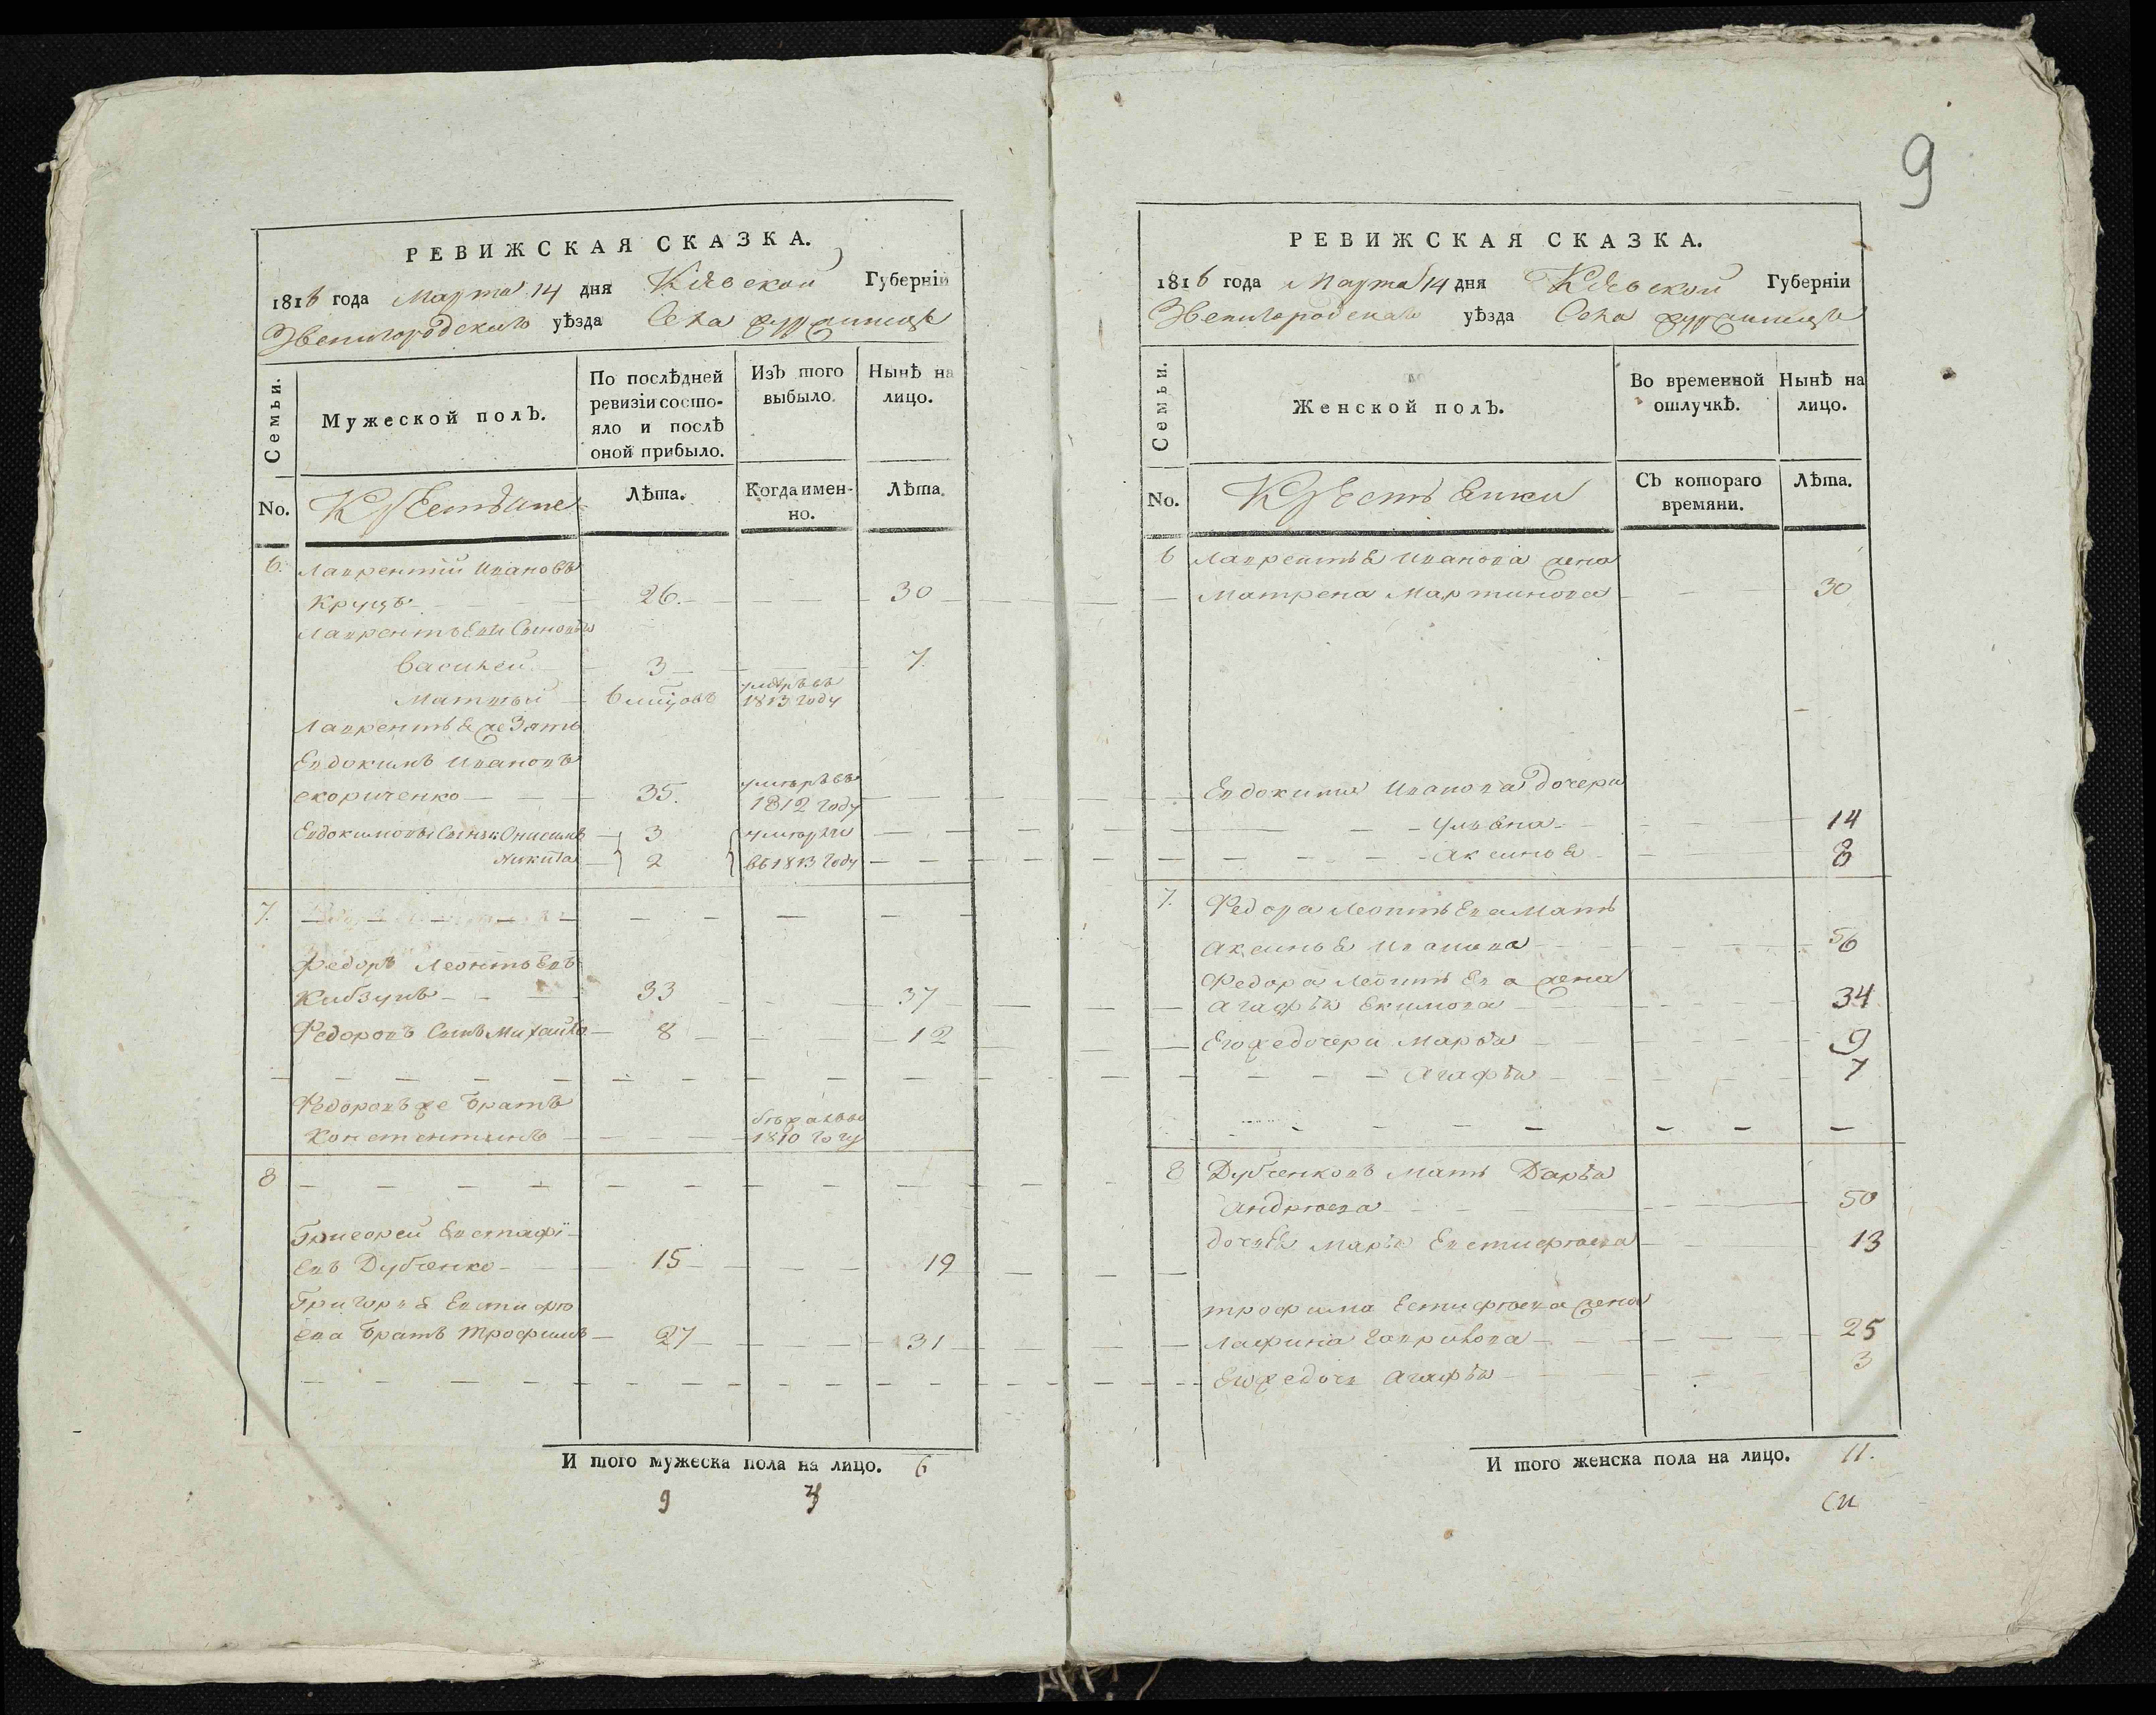 9
РЕВИЖСКАЯ СКАЗКА.
1816 года Марта 14 дня Кіевской Губерніи
Звенигородскаго уѣзда Села
Семьи.
Мужеской полъ.
По послѣдней ревизіи состояло и послѣ оной прибыло.
Изъ того выбыло.
Нынѣ на лицо.
No.
Крестьяне
Лѣта.
Когда именно.
Лѣта.
6. Лаврентій Ивановъ
Круцъ 26. 30
Лаврентьевы Сыновья
Василей 3 7.
Матвѣй 6 мѣсцовъ умѣръ въ 1813 году
Лаврентья же Зять
Евдокимъ Ивановъ
скориченко 35. умѣръ въ 1812 году
Евдокимовы Сыны Онисимъ 3 умѣрли
Никита 2 въ 1813 году
7.
Федоръ Леонтьевъ
Кибзунъ 33 37
Федоровъ Сынъ Михайло 8 12
Федоровъ же братъ
Констентинъ бѣжалъ въ 1810 году
8
Григорей Евстафі-
евъ Дубченко 15 19
Григорья Евстифѣ
ева братъ Трофимъ 27 31
И того мужеска пола на лицо. 6
9
РЕВИЖСКАЯ СКАЗКА.
1816 года Марта 14 дня Кіевской Губерніи
Звенигородскаго уѣзда Села
Семьи.
Женской полъ.
Во временной отлучкѣ.
Нынѣ на лицо.
No.
Крестьянки
Съ котораго времяни.
Лѣта.
6 Лаврентья Иванова жена
Матрена Мартинова 30
Евдокима Иванова дочери
Ульяна 14
Аксинья 8
7. Федора Леонтьева Мать
Аксинья Иванова 56
Федора Леонтьева жена
Агафья Екимова 34
Его же дочери Марья 9
Агафья 7
8 Дубченковъ Мать Дарья
Андрѣева 50
дочь Марья Евстифѣева 13
трофима Естифѣева жена
Гаврилова 25
Его же дочь Агафья 3
И того женска пола на лицо. 11.